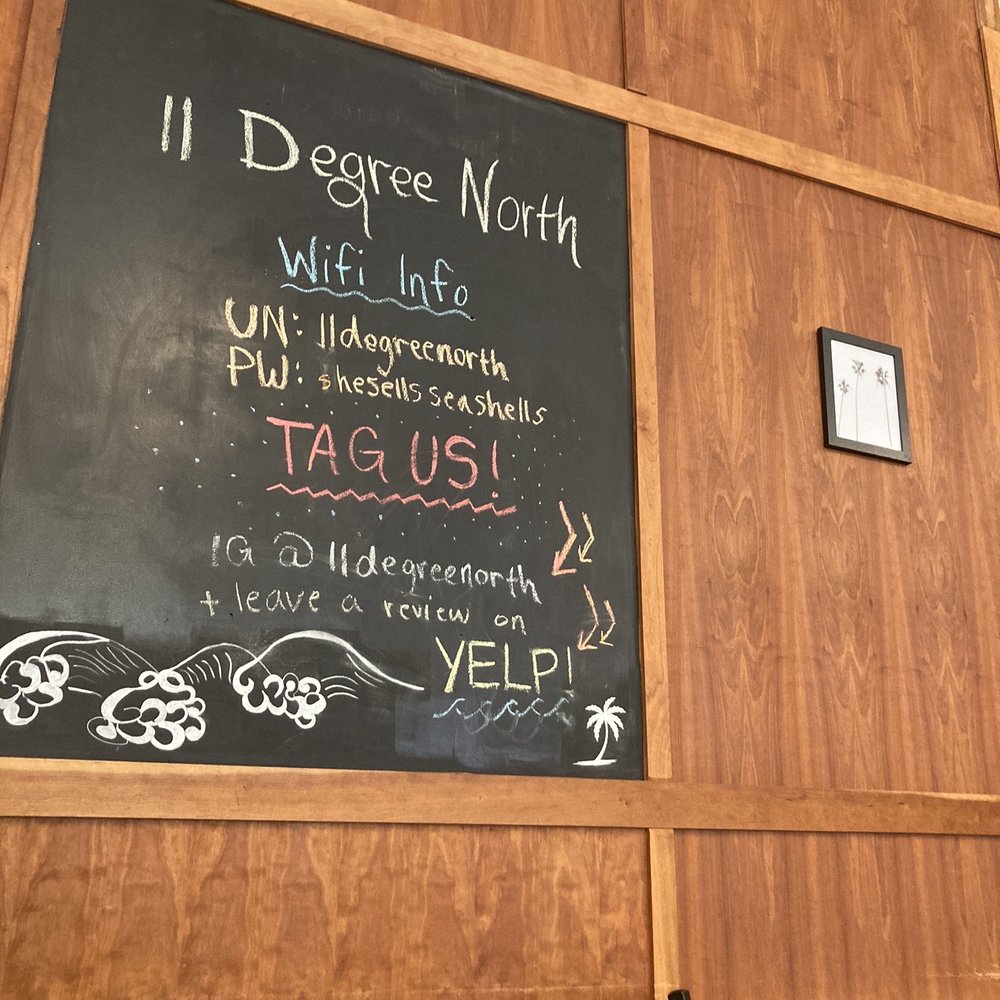 11 Degree North
Wifi Info
UN: 11degreenorth
PW: shesells seashells
TAG US!
IG @ 11degreenorth
+ leave a review on
YELP!